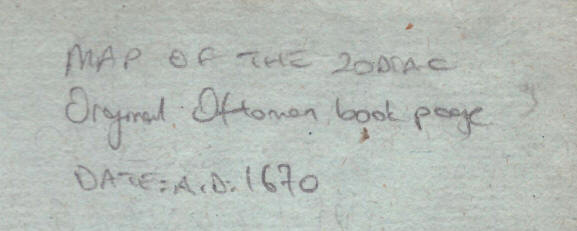 MAP OF THE ZODIAC
Original Ottoman book page
DATE: A.D. 1670